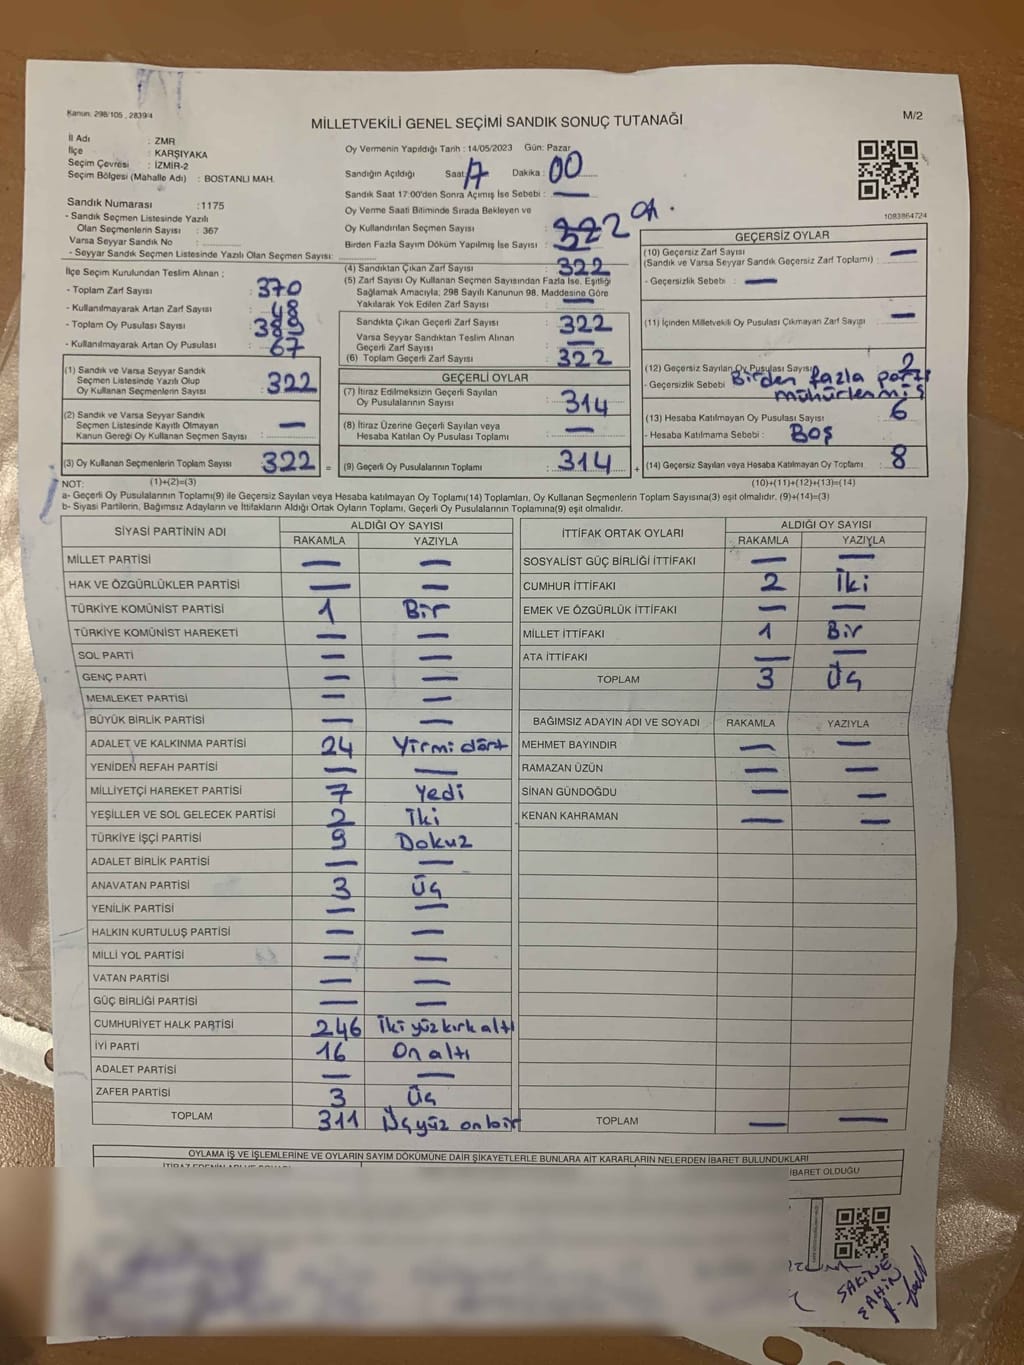 Kanun: 298/105 , 2839/4
M/2
MİLLETVEKİLİ GENEL SEÇİMİ SANDIK SONUÇ TUTANAĞI
İl Adı : ZMR
İlçe : KARŞIYAKA
Seçim Çevresi : İZMİR-2
Seçim Bölgesi (Mahalle Adı) : BOSTANLI MAH.
Sandık Numarası : 1175
- Sandık Seçmen Listesinde Yazılı
Olan Seçmenlerin Sayısı : 367
Varsa Seyyar Sandık No :
- Seyyar Sandık Seçmen Listesinde Yazılı Olan Seçmen Sayısı:
Oy Vermenin Yapıldığı Tarih : 14/05/2023 Gün: Pazar
Sandığın Açıldığı Saat: 17 Dakika : 00
Sandık Saat 17:00'den Sonra Açımış İse Sebebi : —
Oy Verme Saati Bitiminde Sırada Bekleyen ve
Oy Kullandırılan Seçmen Sayısı : 322
Birden Fazla Sayım Döküm Yapılmış İse Sayısı :
1083864724
İlçe Seçim Kurulundan Teslim Alınan ;
- Toplam Zarf Sayısı : 370
- Kullanılmayarak Artan Zarf Sayısı : 48
- Toplam Oy Pusulası Sayısı : 389
- Kullanılmayarak Artan Oy Pusulası : 67
(1) Sandık ve Varsa Seyyar Sandık
Seçmen Listesinde Yazılı Olup
Oy Kullanan Seçmenlerin Sayısı : 322
(2) Sandık ve Varsa Seyyar Sandık
Seçmen Listesinde Kayıtlı Olmayan
Kanun Gereği Oy Kullanan Seçmen Sayısı : —
(3) Oy Kullanan Seçmenlerin Toplam Sayısı : 322 =
(4) Sandıktan Çıkan Zarf Sayısı : 322
(5) Zarf Sayısı Oy Kullanan Seçmen Sayısından Fazla İse, Eşitliği
Sağlamak Amacıyla; 298 Sayılı Kanunun 98. Maddesine Göre
Yakılarak Yok Edilen Zarf Sayısı : —
Sandıkta Çıkan Geçerli Zarf Sayısı : 322
Varsa Seyyar Sandıktan Teslim Alınan
Geçerli Zarf Sayısı : —
(6) Toplam Geçerli Zarf Sayısı : 322
GEÇERLİ OYLAR
(7) İtiraz Edilmeksizin Geçerli Sayılan
Oy Pusulalarının Sayısı : 314
(8) İtiraz Üzerine Geçerli Sayılan veya
Hesaba Katılan Oy Pusulası Toplamı : —
(9) Geçerli Oy Pusulalarının Toplamı : 314 +
GEÇERSİZ OYLAR
(10) Geçersiz Zarf Sayısı
(Sandık ve Varsa Seyyar Sandık Geçersiz Zarf Toplamı) : —
- Geçersizlik Sebebi : —
(11) İçinden Milletvekili Oy Pusulası Çıkmayan Zarf Sayısı : —
(12) Geçersiz Sayılan Oy Pusulası Sayısı : 2
- Geçersizlik Sebebi Birden fazla parti
mühürlenmiş
(13) Hesaba Katılmayan Oy Pusulası Sayısı : 6
- Hesaba Katılmama Sebebi : Boş
(14) Geçersiz Sayılan veya Hesaba Katılmayan Oy Toplamı : 8
NOT: (1)+(2)=(3) (10)+(11)+(12)+(13)=(14)
a- Geçerli Oy Pusulalarının Toplamı(9) ile Geçersiz Sayılan veya Hesaba katılmayan Oy Toplamı(14) Toplamları, Oy Kullanan Seçmenlerin Toplam Sayısına(3) eşit olmalıdır. (9)+(14)=(3)
b- Siyasi Partilerin, Bağımsız Adayların ve İttifakların Aldığı Ortak Oyların Toplamı, Geçerli Oy Pusulalarının Toplamına(9) eşit olmalıdır.
SİYASİ PARTİNİN ADI ALDIĞI OY SAYISI
RAKAMLA YAZIYLA
MİLLET PARTİSİ — —
HAK VE ÖZGÜRLÜKLER PARTİSİ — —
TÜRKİYE KOMÜNİST PARTİSİ 1 Bir
TÜRKİYE KOMÜNİST HAREKETİ — —
SOL PARTİ — —
GENÇ PARTİ — —
MEMLEKET PARTİSİ — —
BÜYÜK BİRLİK PARTİSİ — —
ADALET VE KALKINMA PARTİSİ 24 Yirmi dört
YENİDEN REFAH PARTİSİ — —
MİLLİYETÇİ HAREKET PARTİSİ 7 Yedi
YEŞİLLER VE SOL GELECEK PARTİSİ 2 İki
TÜRKİYE İŞÇİ PARTİSİ 9 Dokuz
ADALET BİRLİK PARTİSİ — —
ANAVATAN PARTİSİ 3 Üç
YENİLİK PARTİSİ — —
HALKIN KURTULUŞ PARTİSİ — —
MİLLİ YOL PARTİSİ — —
VATAN PARTİSİ — —
GÜÇ BİRLİĞİ PARTİSİ — —
CUMHURİYET HALK PARTİSİ 246 İki yüz kırk altı
İYİ PARTİ 16 On altı
ADALET PARTİSİ — —
ZAFER PARTİSİ 3 Üç
TOPLAM 311 Üç yüz on bir
İTTİFAK ORTAK OYLARI ALDIĞI OY SAYISI
RAKAMLA YAZIYLA
SOSYALİST GÜÇ BİRLİĞİ İTTİFAKI — —
CUMHUR İTTİFAKI 2 İki
EMEK VE ÖZGÜRLÜK İTTİFAKI — —
MİLLET İTTİFAKI 1 Bir
ATA İTTİFAKI — —
TOPLAM 3 Üç
BAĞIMSIZ ADAYIN ADI VE SOYADI RAKAMLA YAZIYLA
MEHMET BAYINDIR — —
RAMAZAN ÜZÜN — —
SİNAN GÜNDOĞDU — —
KENAN KAHRAMAN — —
TOPLAM — —
OYLAMA İŞ VE İŞLEMLERİNE VE OYLARIN SAYIM DÖKÜMÜNE DAİR ŞİKAYETLERLE BUNLARA AİT KARARLARIN NELERDEN İBARET BULUNDUKLARI
İBARET OLDUĞU
SAKİNE
ŞAHİN